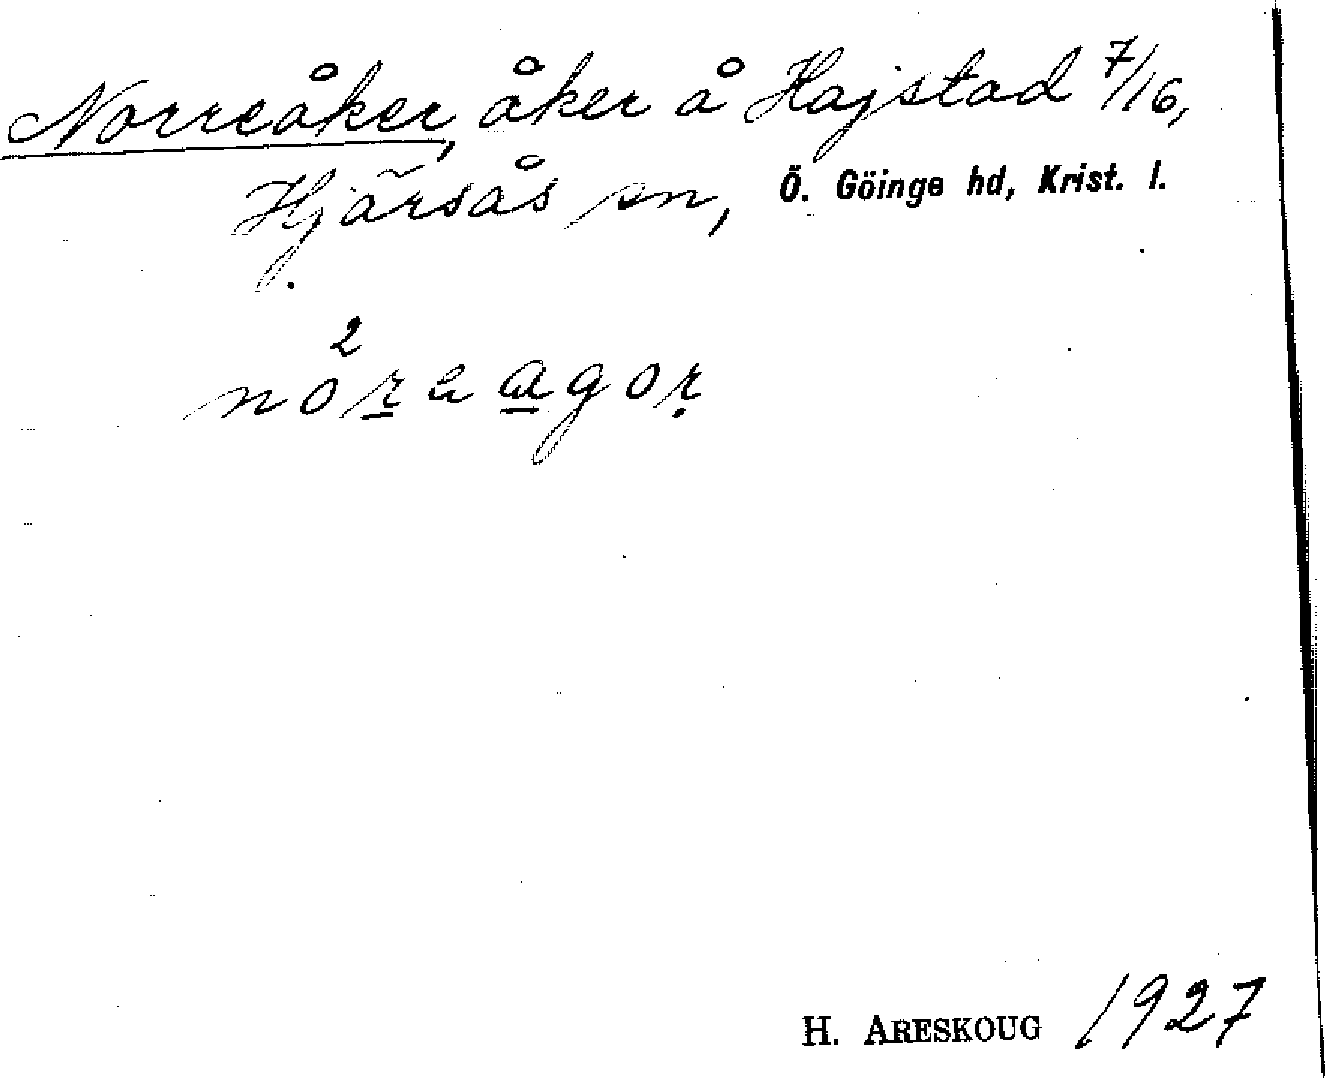 Norreåker, åker å Hajstad 7/16,
Hjärsås sn, Ö. Göinge hd, Krist. l.
2
H. ARESKOUG 1927